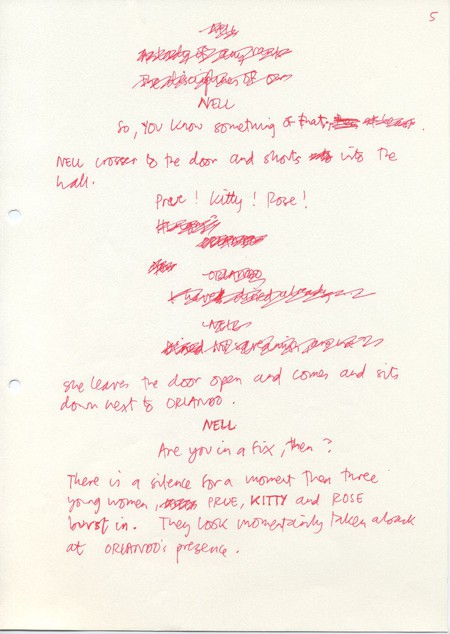 5
NELL
NELL
So, you know something of that.
NELL crosses to the door and shouts into the
hall.
Prue! Kitty! Rose!
ORLANDO
ORLANDO
I have dined already
NELL
She leaves the door open and comes and sits
down next to ORLANDO.
NELL
Are you in a fix, then?
There is a silence for a moment then three
young women, PRUE, KITTY and ROSE
burst in. They look momentarily taken aback
at ORLANDO's presence.